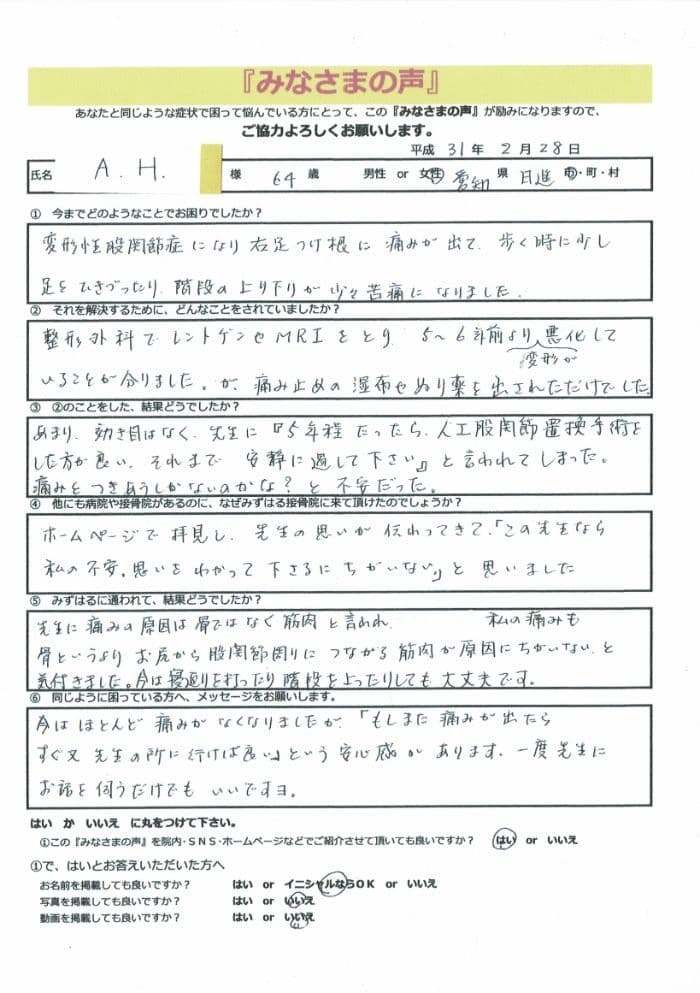 『みなさまの声』
あなたと同じような症状で困って悩んでいる方にとって、この『みなさまの声』が励みになりますので、
ご協力よろしくお願いします。
平成 31 年 2 月 28 日
氏名 A. H. 様 64 歳 男性 or 女性 愛知 県 日進 市・町・村
① 今までどのようなことでお困りでしたか？
変形性股関節症になり右足つけ根に痛みが出て、歩く時に少し
足をひきづったり、階段の上り下りが少々苦痛になりました。
② それを解決するために、どんなことをされていましたか？
整形外科でレントゲンやMRIをとり、5〜6年前より悪化して
変形が
いることが分りました。が、痛み止めの湿布やぬり薬を出されただけでした。
③ ②のことをした、結果どうでしたか？
あまり、効き目はなく、先生に『5年程だったら、人工股関節置換手術を
した方が良い、それまで安静に過して下さい』と言われてしまった。
痛みとつきあうしかないのかな？と不安だった。
④ 他にも病院や接骨院があるのに、なぜみずはる接骨院に来て頂けたのでしょうか？
ホームページで拝見し、先生の思いが伝わってきて、「この先生なら
私の不安。思いをわかって下さるにちがいない」と思いました
⑤ みずはるに通われて、結果どうでしたか？
先生に痛みの原因は骨ではなく筋肉と言われ、 私の痛みも
骨というよりお尻から股関節周りにつながる筋肉が原因にちがいない、と
気付きました。今は寝返りを打ったり階段を上ったりしても大丈夫です。
⑥ 同じように困っている方へ、メッセージをお願いします。
今はほとんど痛みがなくなりましたが、「もしまた痛みが出たら
すぐ又先生の所に行けば良い」という安心感があります。一度先生に
お話を伺うだけでもいいですヨ。
はい か いいえ に丸をつけて下さい。
①この『みなさまの声』を院内・SNS・ホームページなどでご紹介させて頂いても良いですか？ はい or いいえ
①で、はいとお答えいただいた方へ
お名前を掲載しても良いですか？ はい or イニシャルならOK or いいえ
写真を掲載しても良いですか？ はい or いいえ
動画を掲載しても良いですか？ はい or いいえ